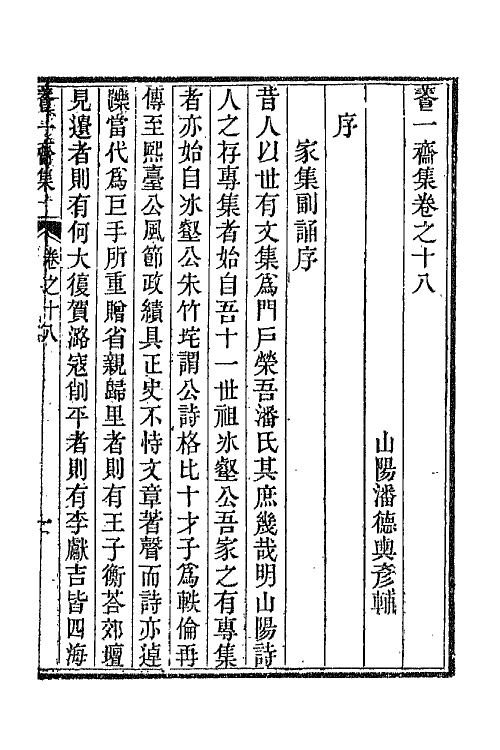 養一齋集卷之十八
山陽潘德輿彥輔
序
家集副誦序
昔人以世有文集爲門戶榮吾潘氏其庶幾哉明山陽詩
人之存專集者始自吾十一世祖冰壑公吾家之有專集
者亦始自冰壑公朱竹垞謂公詩格比十才子爲軼倫再
傳至熙臺公風節政績具正史不恃文章著聲而詩亦逴
躒當代爲巨手所重贈省親歸里者則有王子衡荅郊壇
見遺者則有何大復賀潞寇削平者則有李獻吉皆四海
養一齋集
卷之十八
一